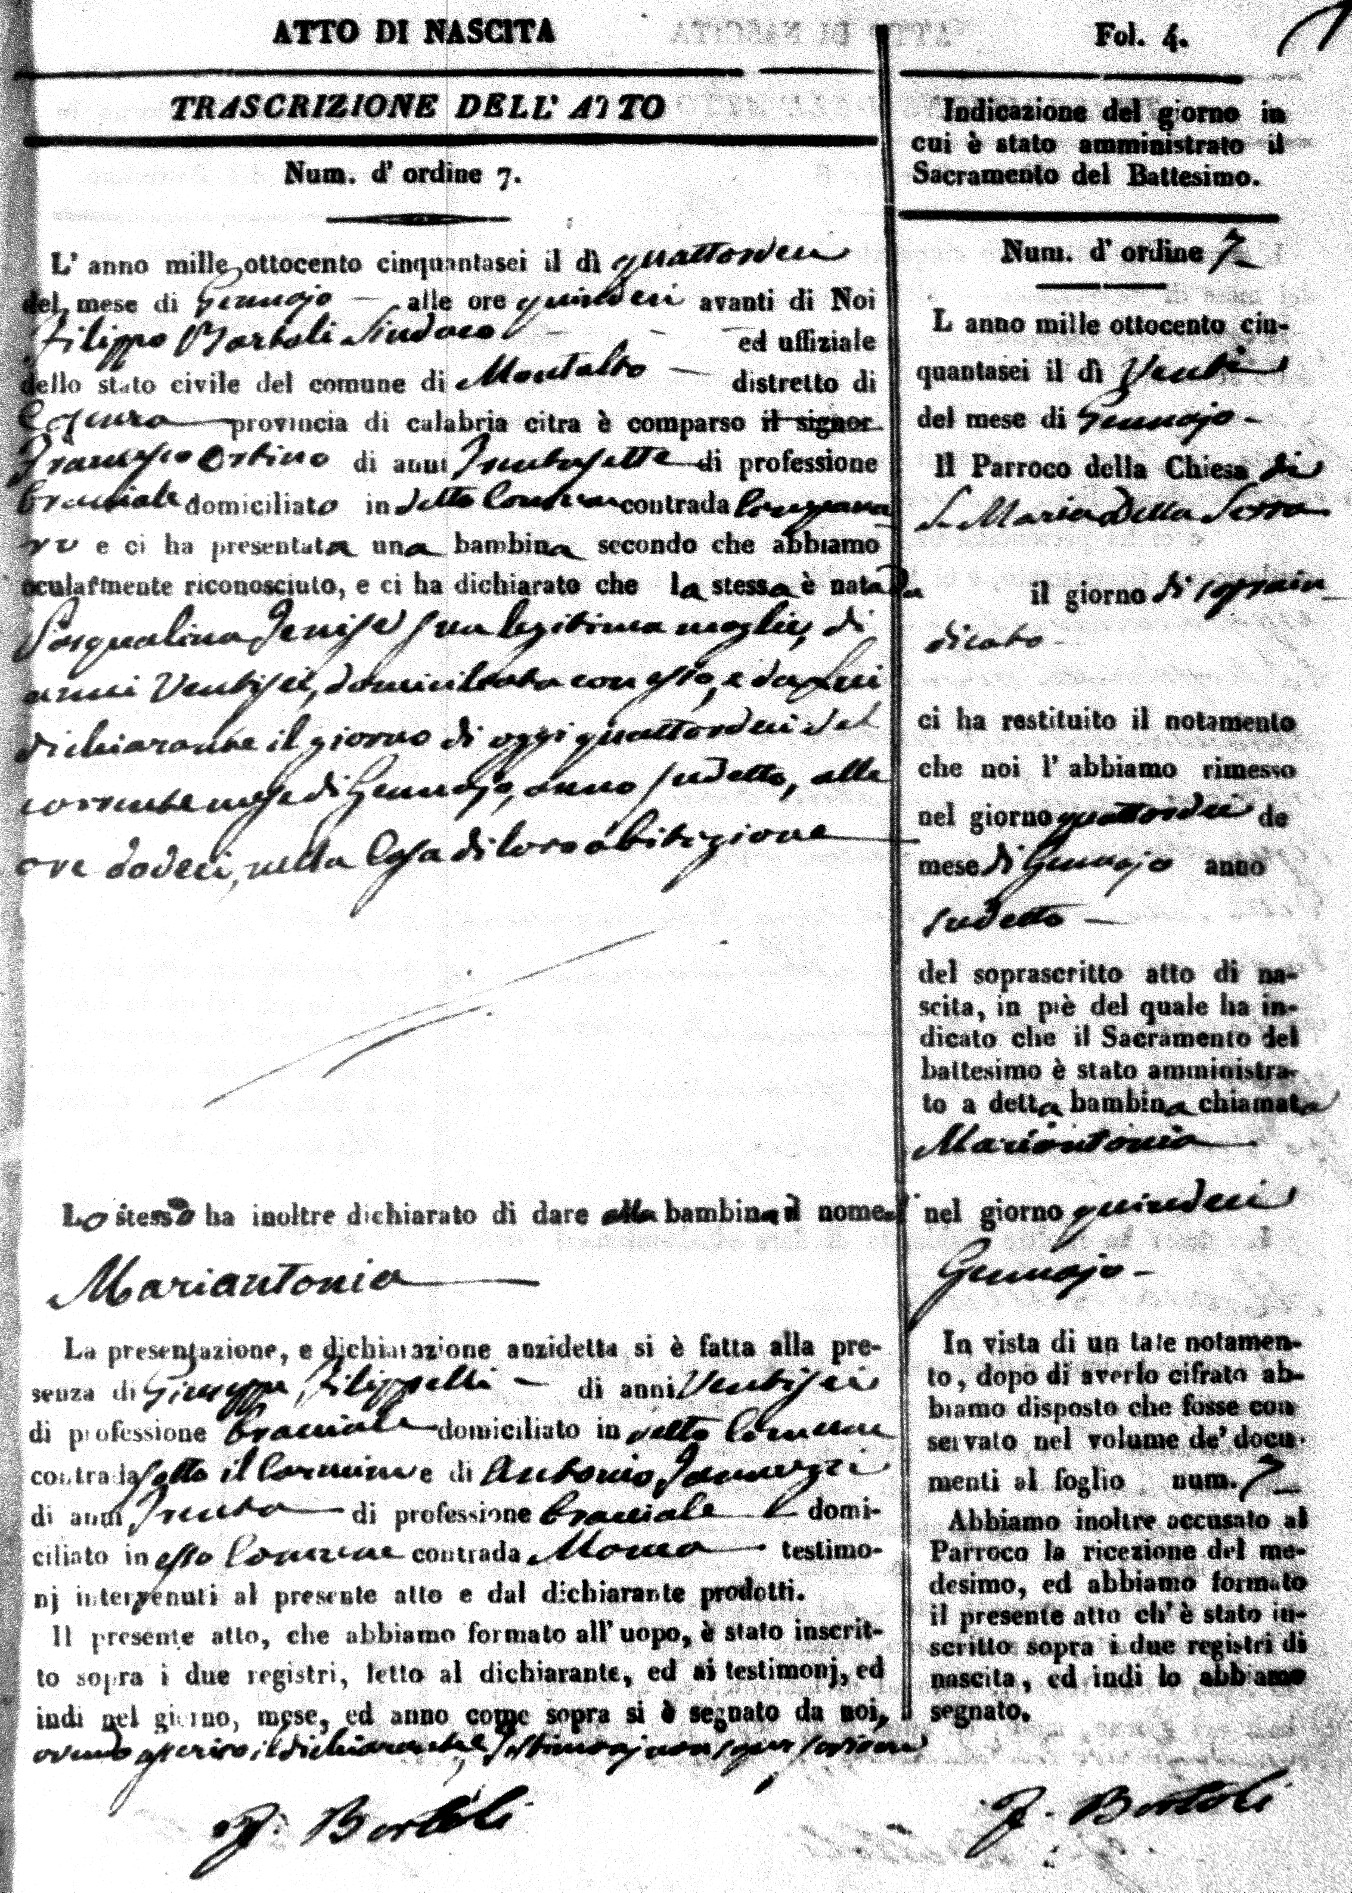 ATTO DI NASCITA
TRASCRIZIONE DELL' ATTO
Num. d' ordine 7.
L' anno mille ottocento cinquantasei il dì quattordeci
del mese di Gennajo — alle ore quindeci avanti di Noi
Filippo Bartoli Sindaco — ed uffiziale
dello stato civile del comune di Montalto — distretto di
Cosenza provincia di calabria citra è comparso il signor
Francesco Ortino di anni Trentasette di professione
Bracciale domiciliato in detto Comune contrada
e ci ha presentata una bambina secondo che abbiamo
ocularmente riconosciuto, e ci ha dichiarato che la stessa è nata da
Pasqualina Jenise sua legitima moglie, di
anni Ventisei, domiciliata con esso, e da Lui
dichiarante il giorno di oggi quattordeci del
corrente mese di Gennajo, anno sudetto, alle
ore dodeci, nella Casa di loro abitazione
Lo stesso ha inoltre dichiarato di dare alla bambina il nome di
Mariantonia
La presentazione, e dichiarazione anzidetta si è fatta alla pre-
senza di Giuseppe Filippelli — di anni Ventisei
di professione bracciale domiciliato in detto Comune
contrada sotto il Carmine e di Antonio Jannuzzi
di anni Trenta di professione bracciale domi-
ciliato in esso Comune contrada testimo-
nj intervenuti al presente atto e dal dichiarante prodotti.
Il presente atto, che abbiamo formato all' uopo, è stato inscrit-
to sopra i due registri, letto al dichiarante, ed ai testimonj, ed
indi nel giorno, mese, ed anno come sopra si è segnato da noi,
avendo asserito il dichiarante, e Testimonj non saper scrivere
F. Bartoli
Fol. 4.
Indicazione del giorno in
cui è stato amministrato il
Sacramento del Battesimo.
Num. d' ordine 7
L anno mille ottocento cin-
quantasei il dì Venti
del mese di Gennajo -
Il Parroco della Chiesa di
S. Maria della Serra
il giorno di sopra in
dicato -
ci ha restituito il notamento
che noi l' abbiamo rimesso
nel giorno quattordeci de
mese di Gennajo anno
sudetto —
del soprascritto atto di na-
scita, in piè del quale ha in-
dicato che il Sacramento del
battesimo è stato amministra-
to a detta bambina chiamata
Mariantonia
nel giorno quindeci
Gennajo -
In vista di un tale notamen-
to, dopo di averlo cifrato ab-
biamo disposto che fosse con
servato nel volume de' docu-
menti al foglio num. 7
Abbiamo inoltre accusato al
Parroco la ricezione del me-
desimo, ed abbiamo formato
il presente atto ch' è stato in-
scritto sopra i due registri di
nascita, ed indi lo abbiamo
segnato.
F. Bartoli